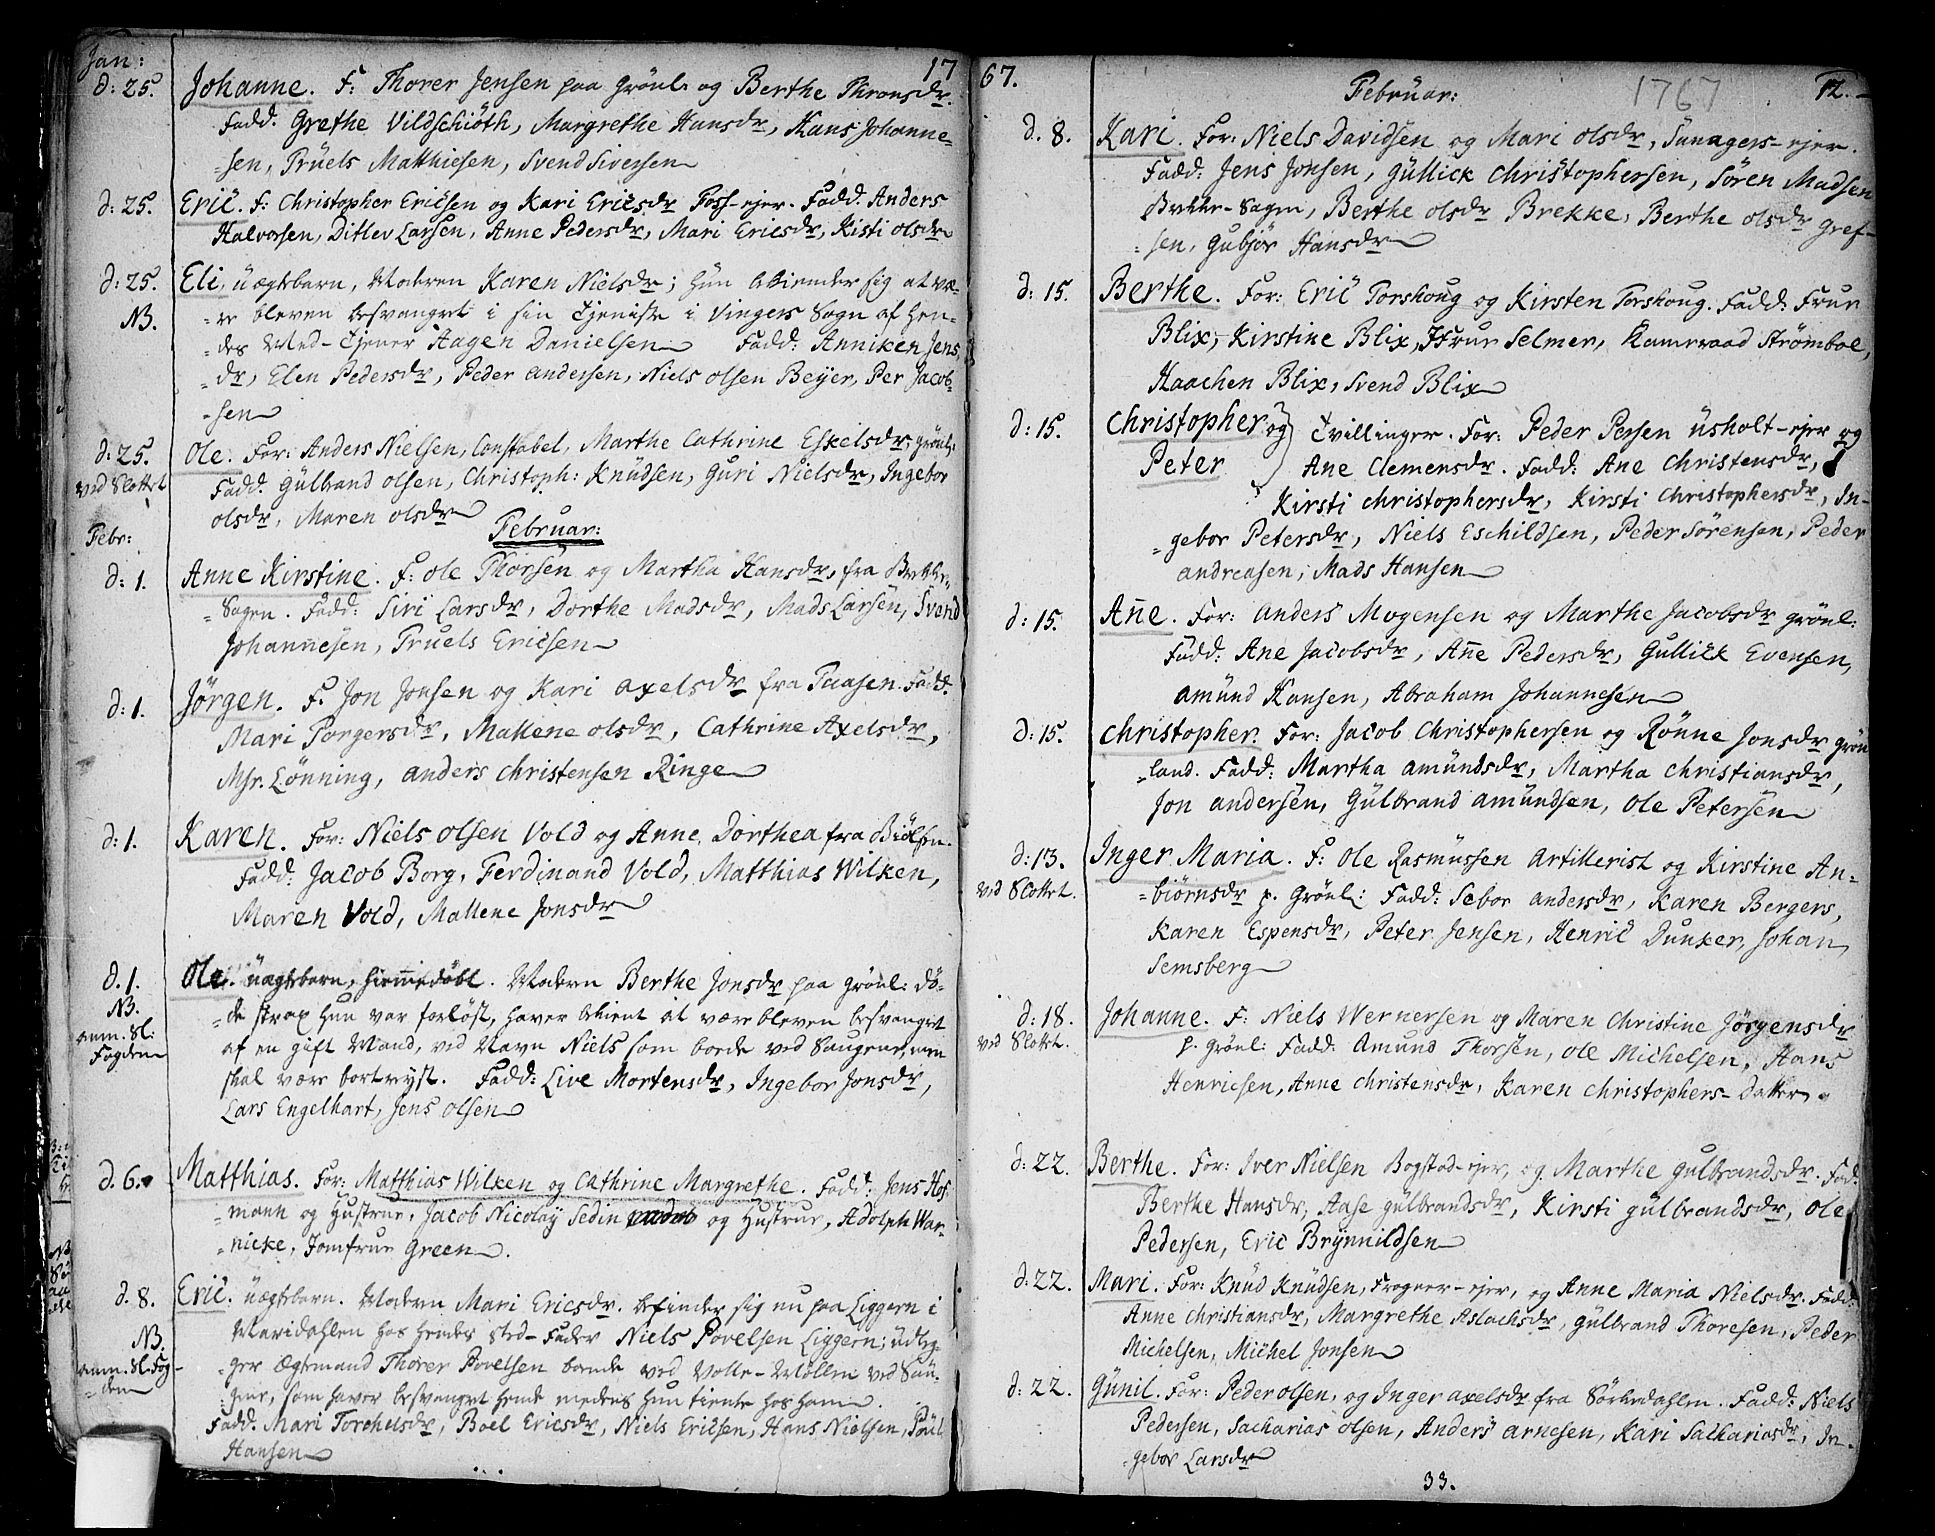 Jan:
17
d: 25. Johanne. F: Thorer Jensen paa Grönl. og Berthe Thronsdr.
Fadd. Grethe Vildschiöth, Margrethe Hansdr, Hans Johanne-
-sen, Trüels Matthiesen, Svend Siversen
d: 25. Eric. F: Christopher Ericsen og Kari Ericsdr Foss-ejer. Fadd. Anders
Halvorsen, Ditlev Larsen, Anne Pedersdr, Mari Ericsdr, Kisti olsdr
d: 25. Eli, uægtebarn, Moderen Karen Nielsdr; hun bekiender sig at væ-
NB. -re bleven besvangret i sin Tjeniste i Vingers Sogn af hen-
-des Med-Tjener Aagen Danielsen Fadd: Anniken Jens
-dr, Elen Pedersdr, Peder Andersen, Niels Olsen Beyer, Per Jacob-
-sen
d: 25. Ole. For: Anders Nielsen, Constabel, Marthe Cathrine Eskelsdr, Grönl:
ved Slottet Fadd: Gülbrand olsen, Christoph: Knüdsen, Guri Nielsdr, Ingebor
olsdr, Maren olsdr
Februar:
Febr:
d: 1. Anne Kirstine. F: Ole Thorsen og Martha Hansdr, fra Bekker-
-Sagen. Fadd: Siri Larsdr, Dorthe Madsdr, Mads Larsen, Svend
Johannesen, Truels Ericsen
d: 1. Jörgen. F. Jon Jonsen og Kari Axelsdr fra Taasen. Fadd.
Mari Torgersdr, Mallene olsdr, Cathrine Axelsdr,
Msr. Lönning, anders Christensen Ringe
d: 1. Karen. For: Niels olsen Vold og Anne Dorthea fra Biölsen.
Fadd: Jacob Borg, Ferdinand Vold, Matthias Wilken,
Maren Vold, Mallene Jonsdr
d. 1. Ole. uægtebarn, hiemmedöbt. Modern Berthe Jonsdr paa Grönl: dö-
NB. -de strax hun var forlöst, haver bekient at være bleven besvangret
anm. Sl: af en gift Mand, ved Navn Niels som boede ved Saugene, men
Fogden skal være bortreyst. Fadd: Live Mortensdr, Ingebor Jonsdr,
Lars Engelhart, Jens olsen
d. 6. Matthias. For: Matthias Wilken og Cathrine Margrethe. Fadd: Jens Hof-
-mann og Hustrue, Jacob Nicolaÿ Sedin og Hustrue, Adolph War-
-nicke, Jomfrue Green.
d. 8. Eric. uægtebarn. Modern Mari Ericsdr. befinder sig nu paa Liggern i
Maridahlen hos hendes Sted-Fader Niels Povelsen Liggern; üdleg-
NB. -ger Ægtemand Thorer Povelsen boende ved Volle-Möllen ved Sau-
anm. Sl. Fog- -gene, som haver besvangret hende medens hun tiente hos ham.
-den Fadd. Mari Torchelsdr, Boel Ericsdr, Niels Ericsen, Hans Nielsen, Poül
Hansen
67.
Februar: 1767 12.
d. 8. Kari. For: Niels Davidsen og Mari olsdr, Tanagers-ejer.
Fadd: Jens Jonsen, Güllick Christophersen, Sören Madsen
Bekker-Sagen, Berthe olsdr Brekke, Berthe olsdr Gref-
-sen, Gubjör Hansdr
d: 15. Berthe. For: Eric Torshoug og Kirsten Torshoug. Fadd: Frue
Blix, Kirstine Blix, Frue Selmer, Kammeraad Strömboe,
Haachen Blix, Svend Blix
d: 15. Christopher og Peter Tvillinger. For: Peder Persen üsholt-ejer og
Ane Clemensdr. Fadd: Ane Christensdr,
Kirsti Christophersdr, Kirsti Christophersdr, In-
-gebor Petersdr, Niels Eschildsen, Peder Sörensen, Peder
andreasen, Mads Hansen
d: 15. Añe. For: Anders Mogensen og Marthe Jacobsdr Grönl:
Fadd: Ane Jacobsdr, Añe Pedersdr, Gullick Evensen,
Amünd Hansen, Abraham Johannesen
d: 15. Christopher. For: Jacob Christophersen og Rönne Jonsdr Grön
-land. Fadd: Martha Amündsdr, Martha Christiansdr,
Jon andersen, Gülbrand Amündsen, Ole Petersen
d: 13. Inger Maria. F: Ole Rasmussen Artillerist og Kirstine An-
ved Slottet. -biörnsdr p. Grönl: Fadd: Sebor andersdr, Karen Bergers,
Karen Espensdr, Peter Jensen, Henric Dunker, Johan
Semsberg
d: 18. Johanne. F: Niels Wernersen og Maren Christine Jörgensdr
ved Slottet. p. Grönl: Fadd: Amund Thorsen, Ole Michelsen, Hans
Henricsen, Anne Christensdr, Karen Christophers-Datter.
d: 22. Berthe. For: Iver Nielsen Bogstad-ejer, og Marthe Gulbrandsdr. Fad.
Berthe Hansdr, Aase gülbrandsdr, Kirsti gülbrandsdr, Ole
Pedersen, Eric Brÿnnildsen
d: 22. Mari. For: Knüd Knüdsen, Frogner-ejer, og Anne Maria Nielsdr. Fadd:
Anne Christiansdr, Margrethe Aslachsdr, Gülbrand Thoresen, Peder
Michelsen, Michel Jonsen
d: 22. Günil. For: Peder olsen, og Inger axelsdr fra Sörkedahlen. Fadd: Niels
Pedersen, Sacharias olsen, Anders arnesen, Kari Sachariasdr, In-
-gebor Larsdr
33.